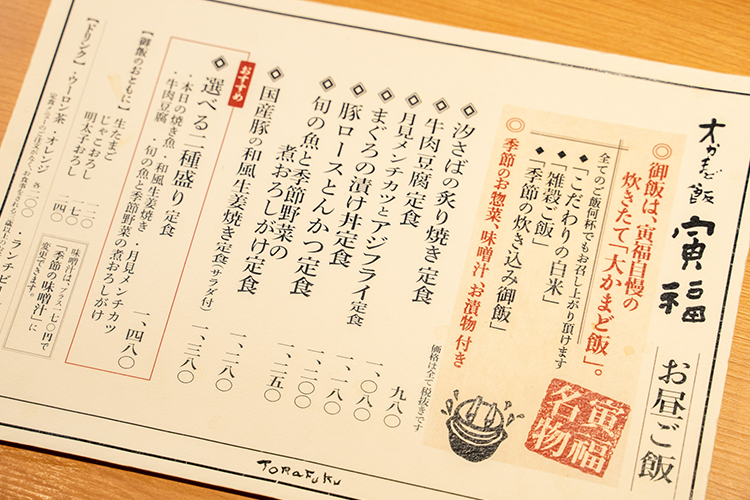 大かまど飯 寅福
お昼ご飯
◎御飯は、寅福自慢の
炊きたて「大かまど飯」。
全てのご飯何杯でもお召し上がり頂けます
◆「こだわりの白米」
◆「雑穀ご飯」
◆「季節の炊き込み御飯」
◎季節のお惣菜、味噌汁、お漬物 付き
寅福名物
価格は全て税抜きです
汐さばの炙り焼き 定食 九八〇
牛肉豆腐 定食 一、〇八〇
月見メンチカツとアジフライ 定食 一、一八〇
まぐろの漬け丼定食 一、二〇〇
豚ロースとんかつ 定食 一、二五〇
旬の魚と季節野菜の
煮おろしがけ 定食 一、二八〇
国産豚の和風生姜焼き 定食(サラダ付) 一、三八〇
おすすめ
選べる二種盛り 定食 一、四八〇
・本日の焼き魚 ・和風生姜焼き ・月見メンチカツ
・牛肉豆腐 ・旬の魚と季節野菜の煮おろしがけ
【御飯のおともに】 生たまご 一二〇
じゃこおろし 一七〇
明太子おろし 二四〇
味噌汁は、プラス一七〇円で
「季節の味噌汁」に
変更できます。
【ドリンク】 ・ウーロン茶 ・オレンジ 各二〇〇
・ランチビ
TORAFUKU